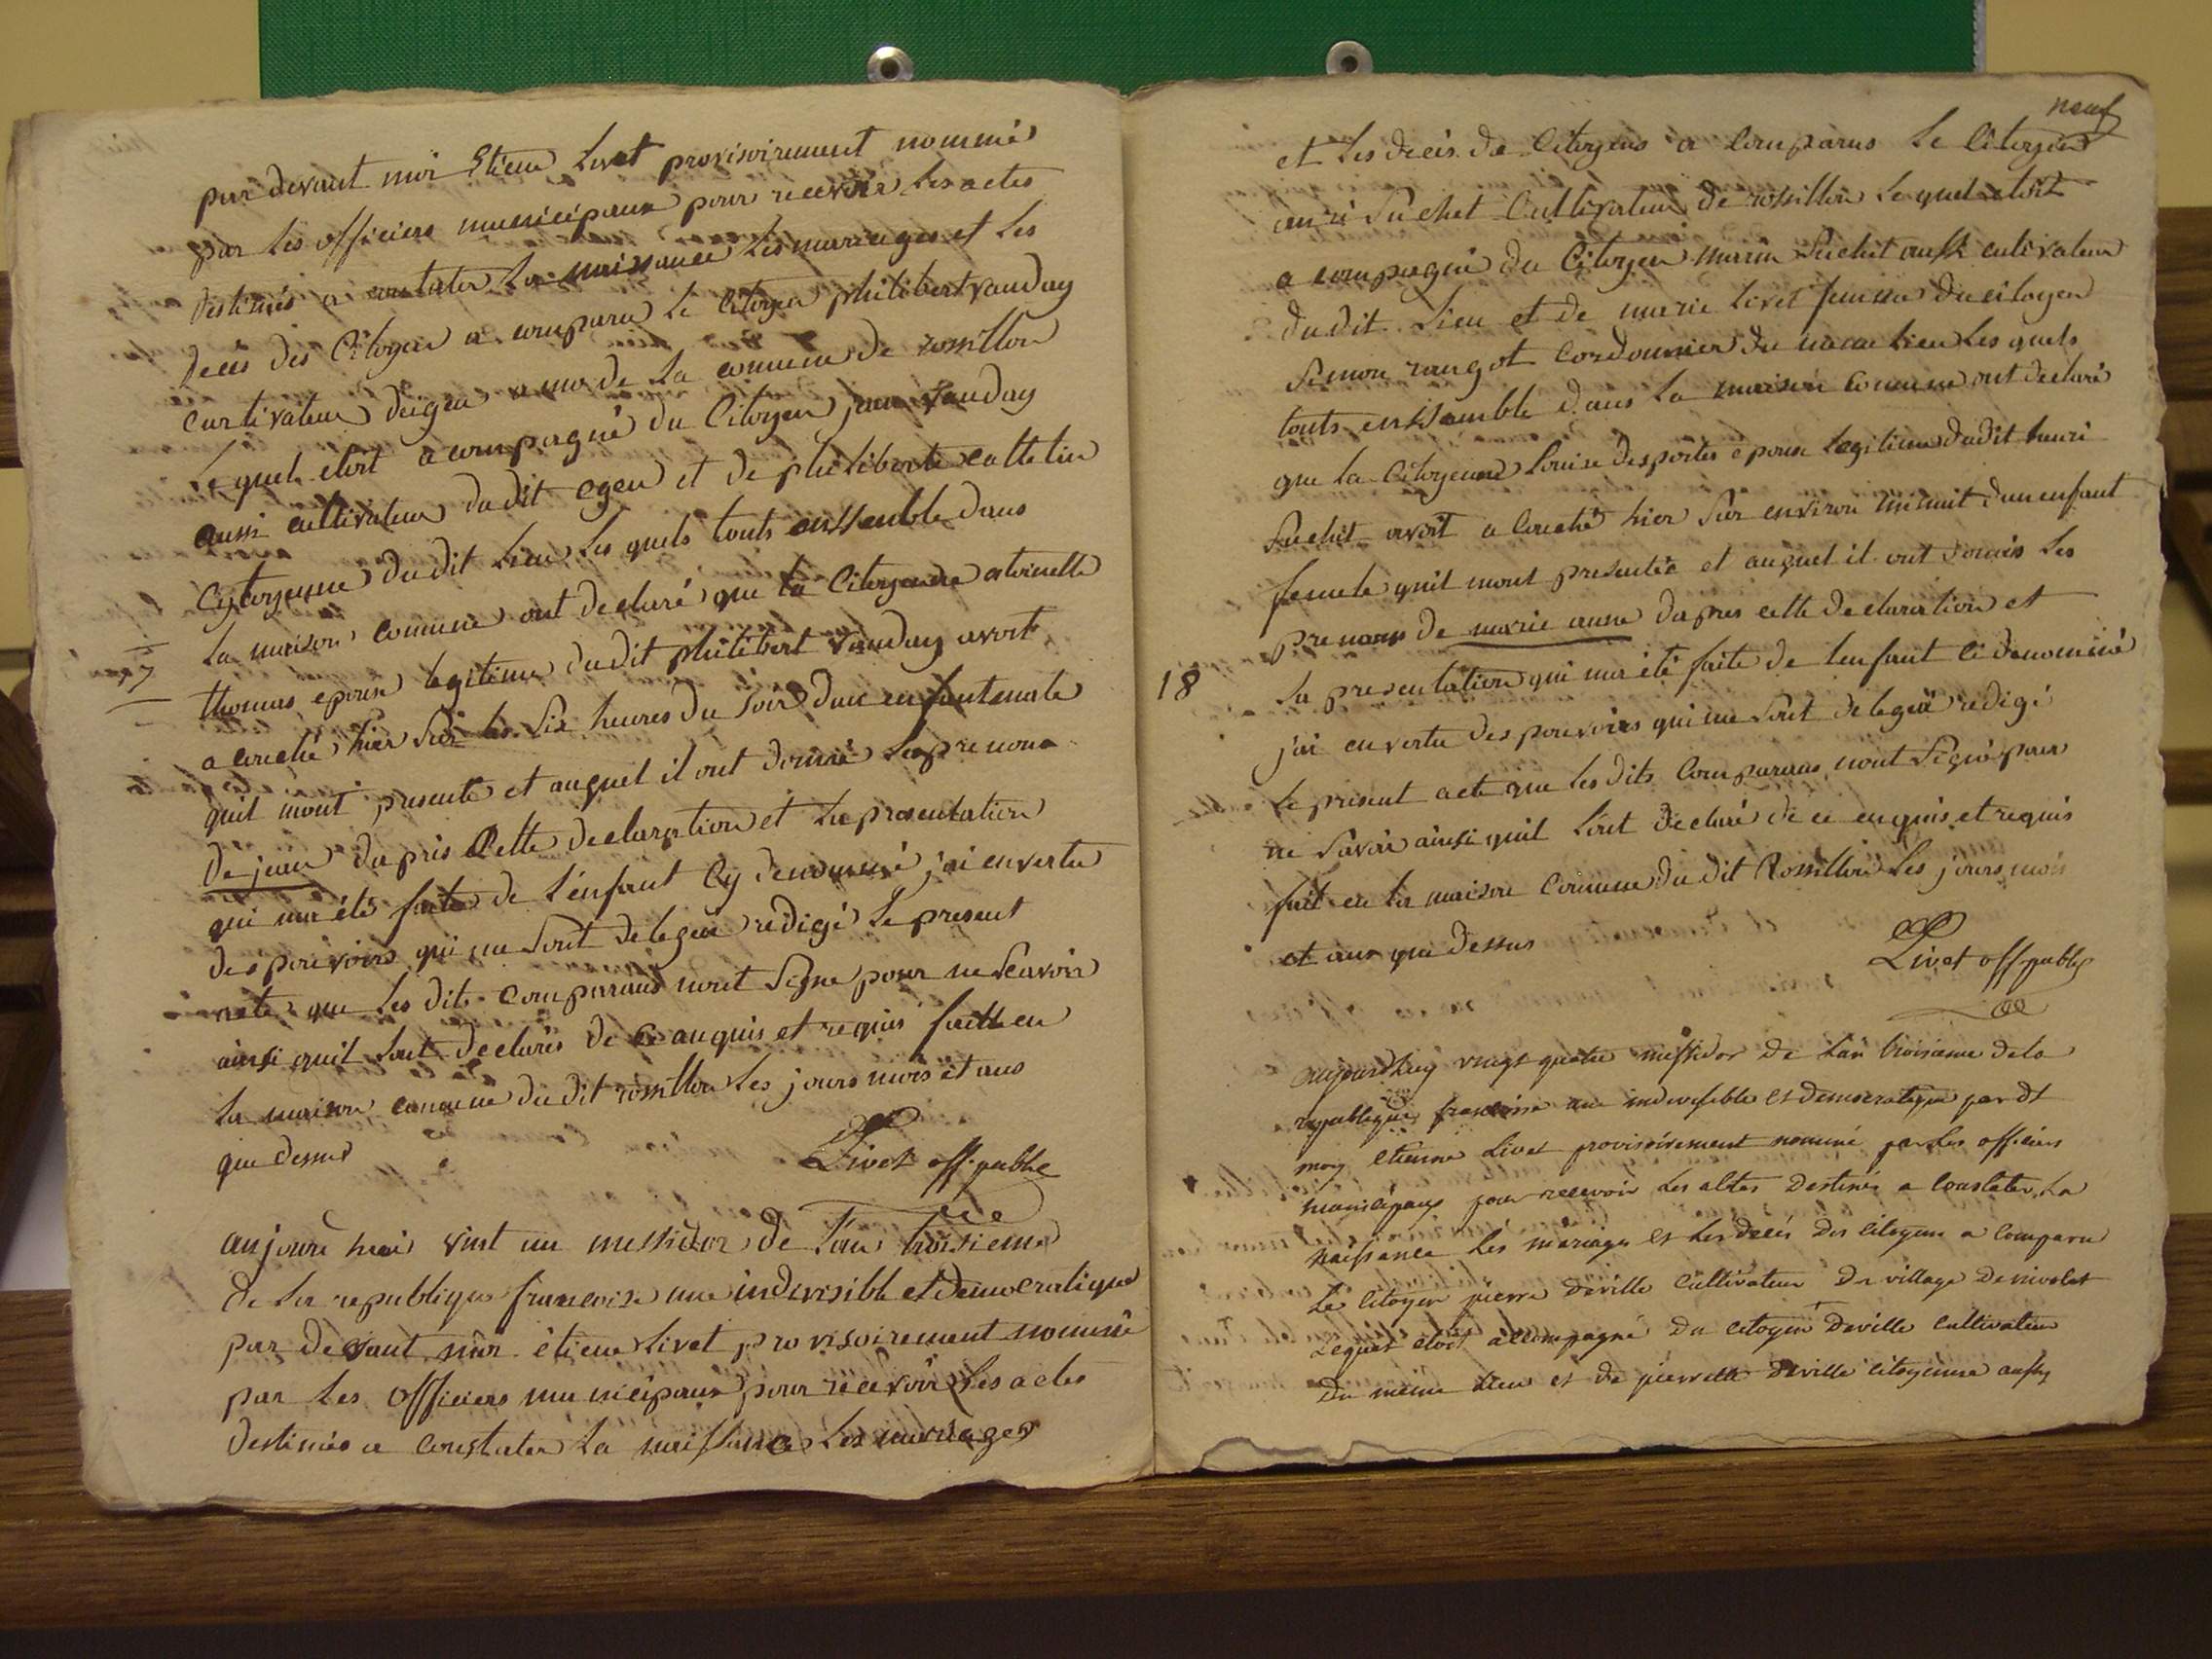 par devant moi Etiene Livet provisoirement nommé
par les officiers municipaux pour recevoir les actes
destinés a contater la naissance les mariages et les
deces des Citoyen a comparu le Citoyen philibert vauday
curtivateur deigeu de la comune de rossillon
le quel etoit acompagné du Citoyen jean vauday
aussi cultivateur du dit egeu et de philiberte cattelin
Cytoyenne du dit lieu les quels touts enssemble dans
la maison comune ont declaré que la Citoyenne
17
thomas epouse legitime du dit philibert vauday avoit
acouché hier sur les six heures du soir dun enfant male
quil mont presenté et auquel il ont donné le prenom
de jean dapris Cette declaration et la presentation
qui ma été faite de l'enfant Cy denommé j'ai en vertu
des pouvoirs qui me sont delegué redigé le present
acte que les dits comparans nont signe pour ne scavoir
ainsi quil lont declarés de ce anquis et requis fait en
la maison comune du dit rossillon les jours mois et ans
que dessus
Livet off. public
aujourd huai vint un messidor de l'an troisieme
de la republique francoise une indivisible et democratique
par devant moi étiene livet provisoirement nommé
par les officiers municipaux pour recevoir les actes
destinés a constater la naissance les mariages
neuf
et les decés de Citoyens a comparus le Citoyen
anri Suchet Cultivateur de rossillon le quel etoit
acompagné du Citoyen marin Suchet aussi cultivateur
du dit lieu et de marie livet femme du citoyen
Simon rangot Cordonnier du meme lieu les quels
touts enssemble dans la maison Comune ont declaré
que la Citoyenne Louise desportes epouse legitime dudit henri
Suchet avoit acouché hier sur environ minuit dun enfant
femele quil mont presentée et auquel il ont donnés les
prenoms de marie anne dapres cette declaration et
18
la presentation qui ma été faite de lenfant ci denommé
j'ai en vertu des pouvoirs qui me sont delegué redigé
le present acte que les dits Comparans nont Signé pour
ne savoir ainsi quil lont declaré de ce enquis et requis
fait en la maison Comune du dit Rossillon les jours mois
et ans que dessus
Livet off public
aujourdhuy vingt quatre messidor de lan troisieme de la
republique francoise une indivisible et democratique pardt
moy etienne Livet provisoirement nommé par les officiers
municipaux pour recevoir les actes destinés a Constater la
naissance les mariages et les deces des citoyens a comparu
Le citoyen pierre deville cultivateur du village de nivolet
Lequel etoit accompagné du citoyen deville cultivateur
du meme lieu et de pierrette deville citoyenne aussy